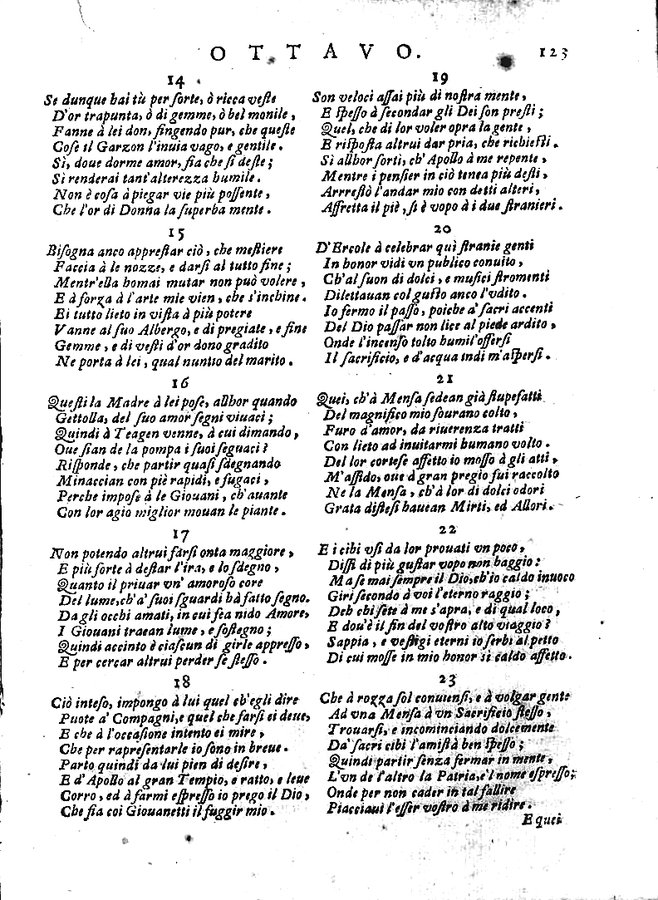 OTTAVO.
123
14
Se dunque hai tù per sorte, ò ricca veste
D'or trapunta, ò di gemme, ò bel monile,
Fanne à lei don, fingendo pur, che queste
Cose il Garzon l'inuia vago, e gentile.
Sì, doue dorme amor, fia che si deste;
Sì renderai tant'alterezza humile.
Non è cosa à piegar vie più possente,
Che l'or di Donna la superba mente.
15
Bisogna anco apprestar ciò, che mestiere
Faccia à le nozze, e darsi al tutto fine;
Mentr'ella homai mutar non può volere,
E à forza à l'arte mie vien, che s'inchine.
Ei tutto lieto in vista à più potere
Vanne al suo Albergo, e di pregiate, e fine
Gemme, e di vesti d'or dono gradito
Ne porta à lei, qual nuntio del marito.
16
Questi la Madre à lei pose, allhor quando
Gettolla, del suo amor segni viuaci;
Quindi à Teagen venne, à cui dimando,
Oue sian de la pompa i suoi seguaci?
Risponde, che partir quasi sdegnando
Minaccian con piè rapidi, e fugaci,
Perche impose à le Giouani, ch'auante
Con lor agio miglior mouan le piante.
17
Non potendo altrui farsi onta maggiore,
E più forte à destar l'ira, e lo sdegno,
Quanto il priuar vn' amoroso core
Del lume, ch'a' suoi sguardi hà fatto segno.
Da gli occhi amati, in cui sea nido Amore,
I Giouani traean lume, e sostegno;
Quindi accinto è ciascun di girle appresso,
E per cercar altrui perder se stesso.
18
Ciò inteso, impongo à lui quel ch'egli dire
Puote a' Compagni, e quel che farsi ei deue,
E che à l'occasione intento ei mire,
Che per rapresentarle io sono in breue.
Parto quindi da lui pien di desire,
E d'Apollo al gran Tempio, e ratto, e leue
Corro, ed à farmi espresso io prego il Dio,
Che sia coi Giouanetti il fuggir mio.
19
Son veloci assai più di nostra mente,
E spesso à secondar gli Dei son presti;
Quel, che di lor voler opra la gente,
E risposta altrui dar pria, che richiesti.
Sì allhor sortì, ch'Apollo à me repente,
Mentre i pensier in ciò tenea più desti,
Arrestò l'andar mio con detti alteri,
Affretta il piè, sì è vopo à i due stranieri.
20
D'Ercole à celebrar quì stranie genti
In honor vidi vn publico conuito,
Ch'al suon di dolci, e musici stromenti
Dilettauan col gusto anco l'vdito.
Io fermo il passo, poiche a' sacri accenti
Del Dio passar non lice al piede ardito,
Onde l'incenso tolto humil'offersi
Il sacrificio, e d'acqua indi m'aspersi.
21
Quei, ch'à Mensa sedean già stupefatti
Del magnifico mio sourano colto,
Furo d'amor, da riuerenza tratti
Con lieto ad inuitarmi humano volto.
Del lor cortese affetto io mosso à gli atti,
M'assido, oue à gran pregio fui raccolto
Ne la Mensa, ch'à lor di dolci odori
Grata distesi haueàn Mirti, ed Allori.
22
E i cibi vsi da lor prouati vn poco,
Dissi di più gustar vopo non haggio:
Ma se mai sempre il Dio, ch'io caldo inuoco
Giri secondo à voi l'eterno raggio;
Deh chi sete à me s'apra, e di qual loco,
E dou'è il fin del vostro alto viaggio?
Sappia, e vestigi eterni io serbi al petto
Di cui mosse in mio honor sì caldo affetto.
23
Che à rozza sol conuiensi, e à volgar gente
Ad vna Mensa à vn Sacrificio stesso,
Trouarsi, e incominciando dolcemente
Da' sacri cibi l'amistà ben spesso;
Quindi partir senza fermar in mente,
L'vn de l'altro la Patria, e'l nome espresso;
Onde per non cader in tal fallire
Piacciaui l'esser vostro à me ridire.
E quei